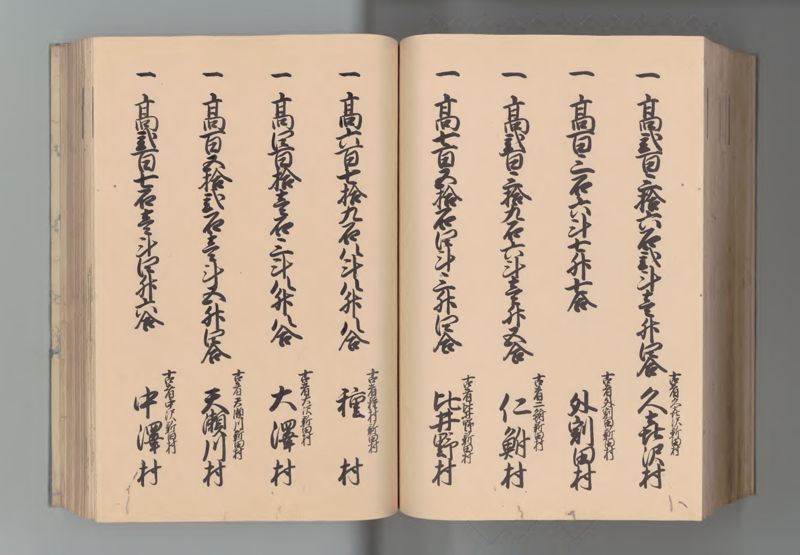 一 高弐百三拾六石弐斗壱升四合
古者久喜沢新田村
久喜沢村
一 高百二石六斗七升七合
古者外割田新田村
外割田村
一 高弐百三拾九石六斗壱升五合
古者二鮒新田村
仁鮒村
一 高七百五拾石四斗三升四合
古者比井野新田村
比井野村
一 高六百七拾九石八斗八升八合
古者種村新田村
種村
一 高四百拾壱石三斗八升八合
古者大沢新田村
大澤村
一 高百五拾弐石壱斗五升四合
古者天瀬川新田村
天瀬川村
一 高弐百十石壱斗四升六合
古者中沢新田村
中澤村